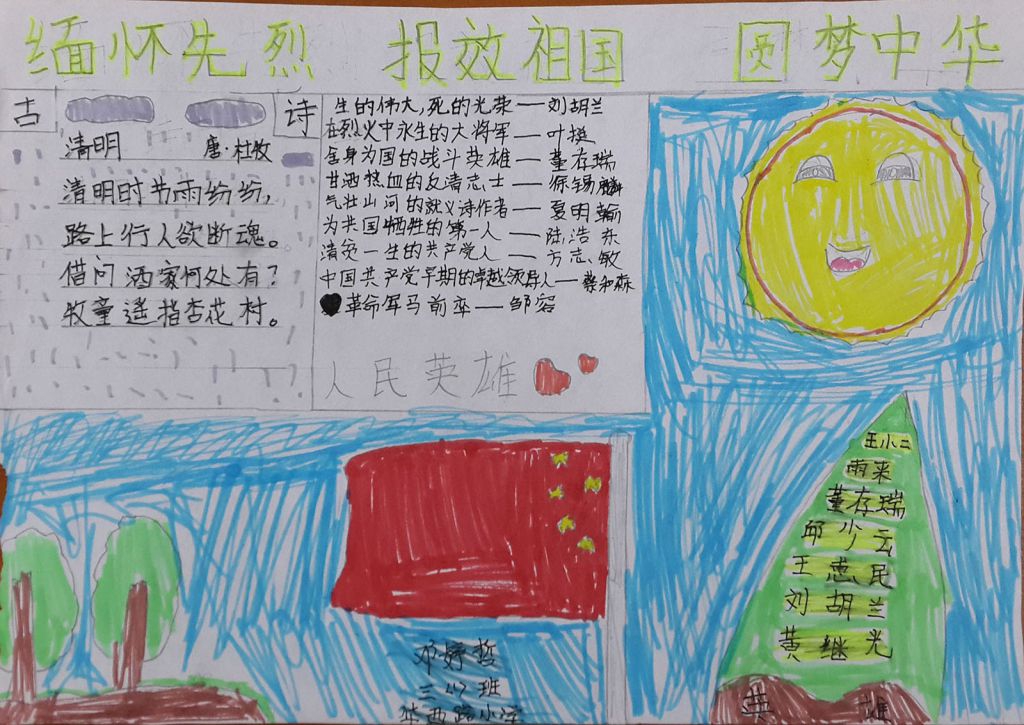 缅怀先烈 报效祖国 圆梦中华
古 诗
清明 唐·杜牧
清明时节雨纷纷,
路上行人欲断魂。
借问酒家何处有?
牧童遥指杏花村。
生的伟大,死的光荣——刘胡兰
在烈火中永生的大将军——叶挺
舍身为国的战斗英雄——董存瑞
甘洒热血的反清志士——徐锡麟
气壮山河的就义诗作者——夏明翰
为共国牺牲的第一人——陆浩东
清贫一生的共产党人——方志敏
中国共产党早期的卓越领导人——蔡和森
革命军马前卒——邹容
人民英雄
王小二
雨来
董存瑞
邱少云
王惠民
刘胡兰
黄继光
英雄
邓婷哲
三(4)班
西路小学